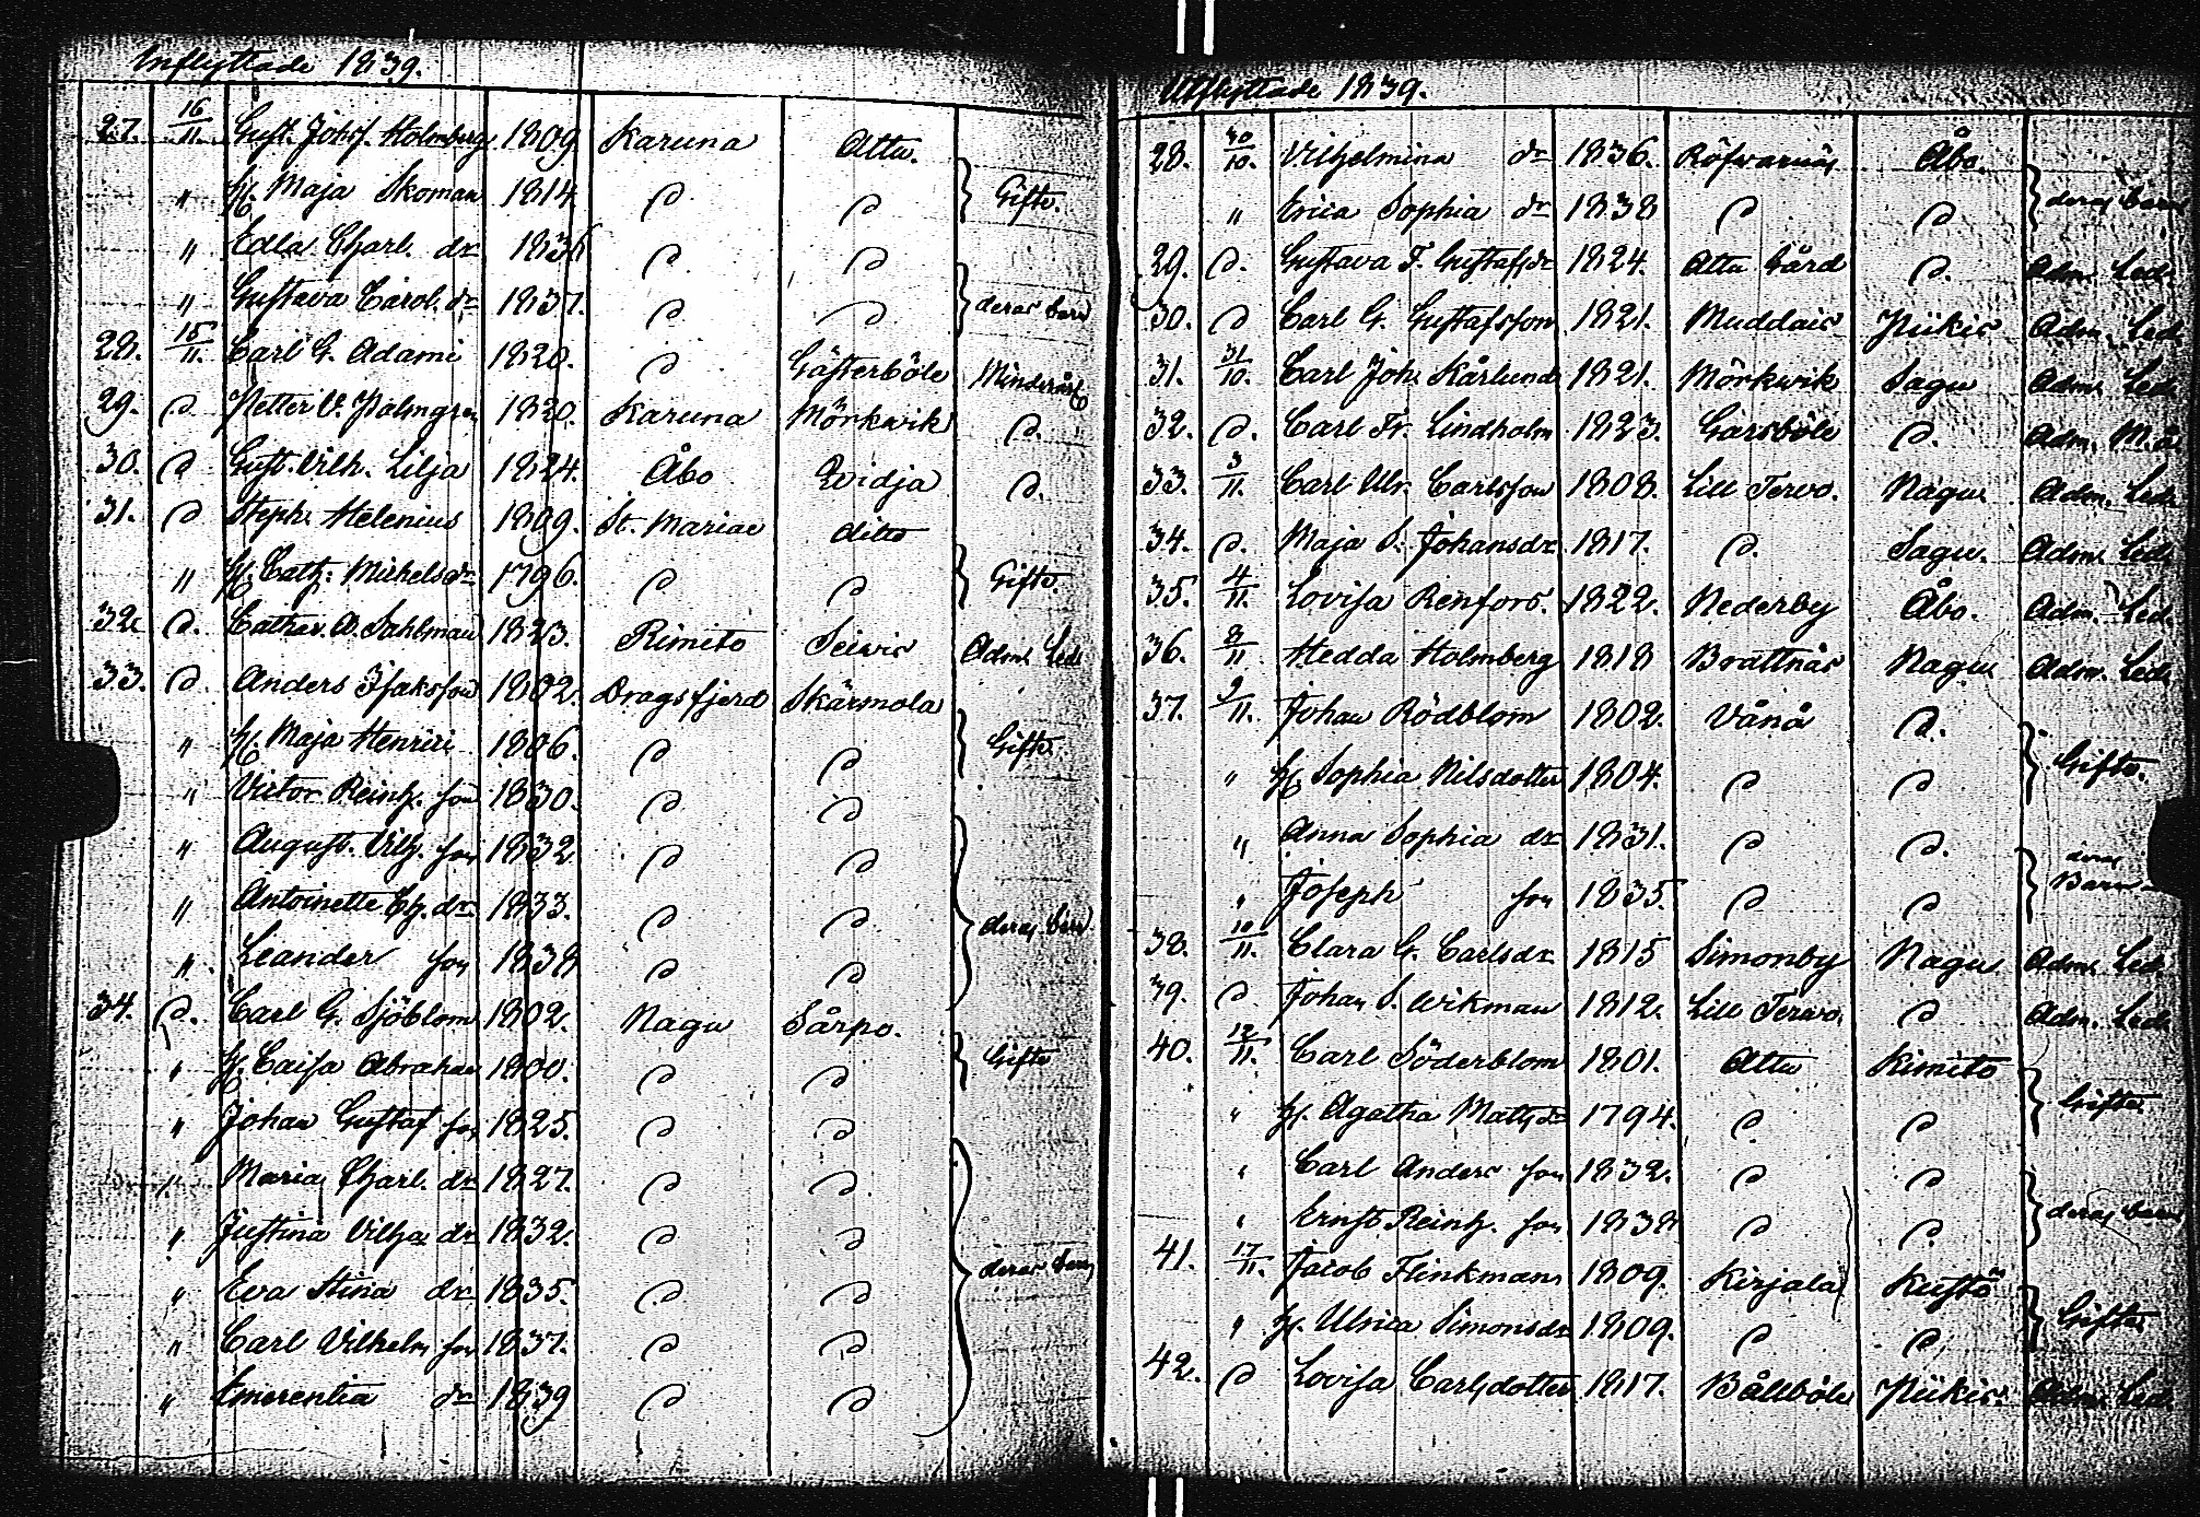 Inflyttade 1839.
27. 16/11. Gust. Johs. Holmberg 1809 Karuna Attu.
" h. Maja Skoman 1814 D D Gifte.
" Edla Charl. dr 1836 D D
" Gustava Carol. dr 1837. D D deras barn
28. 15/11. Carl G. Adami 1820. D Gästerböle Minderårig
29. D Petter V. Palmgren 1820. Karuna Mörkwik D.
30. D Gust. Vilh. Lilja 1824. Åbo Qvidja D.
31. D Steph. Helenius 1809. St. Mariae ditto
" h. Cath. Michelsdr 1796. D D Gifte.
32. D. Cathar. A. Sahlman 1823. Rimito Seivis Adm. Led.
33. D. Anders Isaksson 1802. Dragsfjerd Skärmola
" h. Maja Henrici 1806. D D Gifte.
" Victor Reinh. son 1830. D D
" August. Vilh. son 1832 D D
" Antoinette Ch. dr 1833. D D deras barn
" Leander son 1838 D D
34. D. Carl G. Sjöblom 1802. Nagu Sårpo.
" h. Caisa Abraham 1800. D D Gifte
" Johan Gustaf son 1825. D D
" Maria Charl. dr 1827. D D
" Justina Vilha dr 1832. D D
" Eva Stina dr 1835. D D deras barn
" Carl Vilhelm son 1837. D D
" Emerentia dr 1839 D D
Utflyttade 1839.
28. 30/10. Vilhelmina dr 1836. Röfvarnäs Åbo.
" Erica Sophia dr 1838 D D deras barn
29. D. Gustava F. Gustafsdr 1824. Attu Gård D. Adm. Led.
30. D Carl G. Gustafsson 1821. Muddais Piikis Adm. Led.
31. 31/10. Carl Joh. Kårlund 1821. Mörkwik Sagu Adm. Led.
32. D. Carl Fr. Lindholm 1823. Garsböle D. Adm. M.å.
33. 3/11. Carl Ulr. Carlsson 1808. Lill Tervo. Nagu Adm. Led.
34. D. Maja S. Johansdr 1817. D. Sagu. Adm. Led.
35. 4/11. Lovisa Renfors. 1822. Nederby Åbo. Adm. Led.
36. 8/11. Hedda Holmberg 1818 Brattnäs Nagu Adm. Led.
37. 9/11. Johan Rödblom 1802. Vånå D.
" h. Sophia Nilsdotter 1804. D D Gifte.
" Anna Sophia dr 1831. D D.
" Joseph son 1835. D D deras Barn
38. 10/11. Clara G. Carlsdr 1815 Simonby Nagu Adm. Led.
39. D. Johan S. Wikman 1812. Lill Tervo. D Adm. Led.
40. 12/11. Carl Söderblom 1801. Attu Kimito
" h. Agatha Mattsdr 1794. D D Gifte
" Carl Anders son 1832. D D
" Ernst Reinh. son 1838 D D. deras barn
41. 17/11. Jacob Flinkman 1809. Kirjala Kustö
" h. Ulrica Simonsdr 1809. D D Gifte
42. D Lovisa Carlsdotter 1817. Bållböle Piikis. Adm. Led.